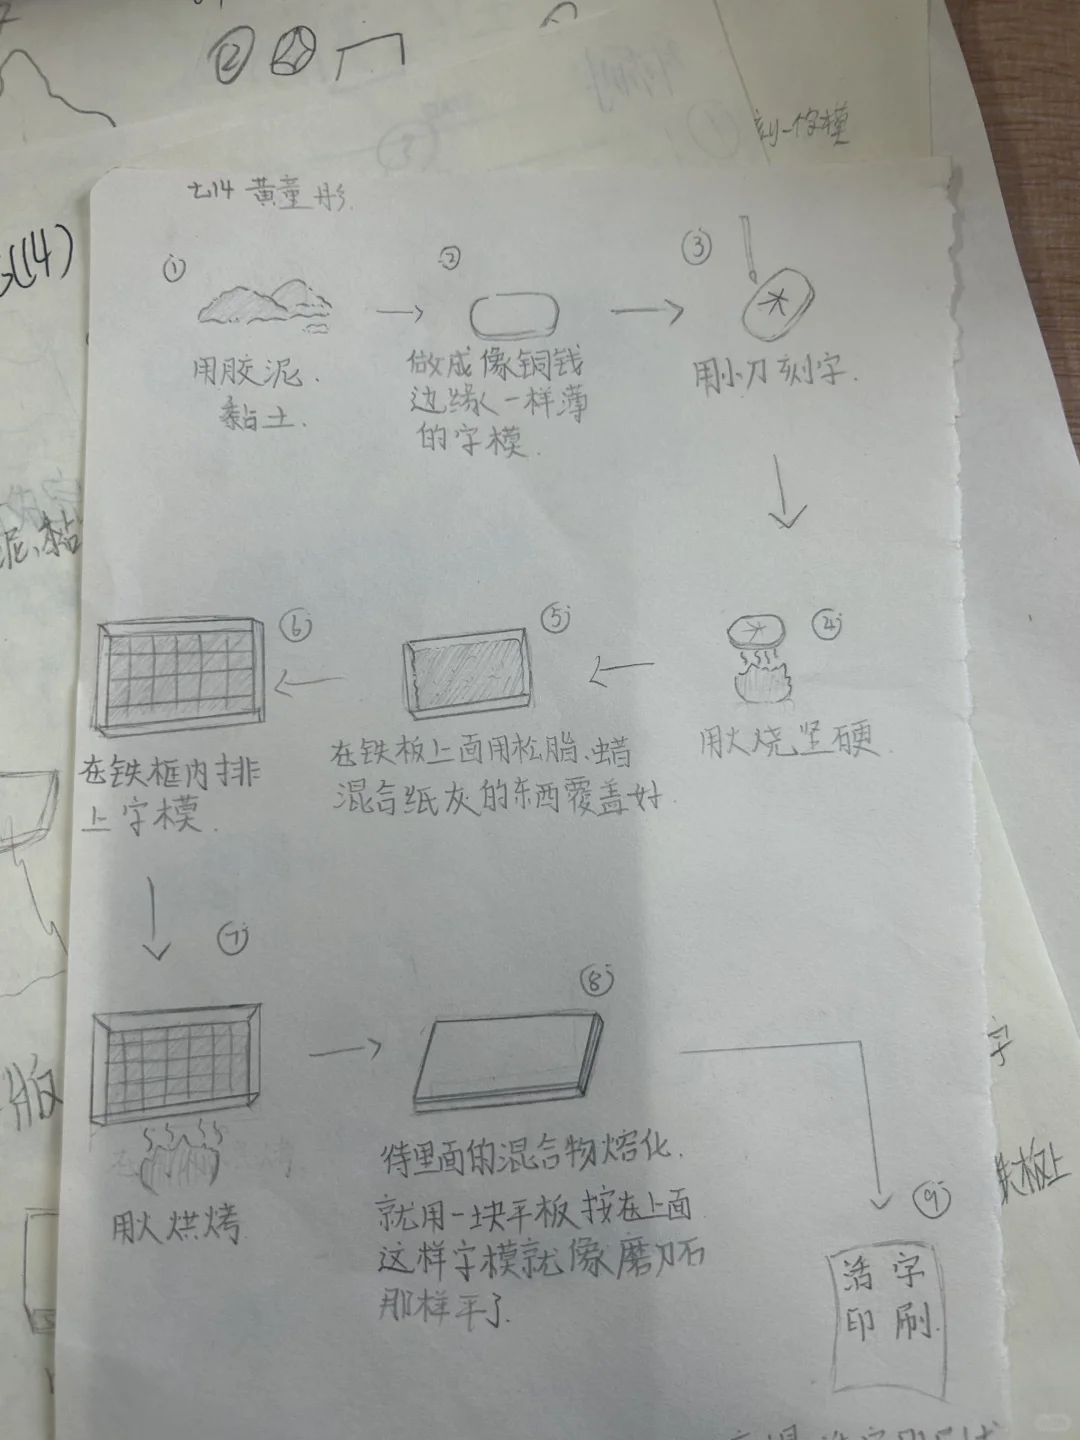 ②
刻一个字模
(14)
七14 黄童彤.
①
用胶泥.
黏土.
②
做成像铜钱
边缘一样薄
的字模.
③
用小刀刻字.
④
用火烧坚硬
⑤
在铁板上面用松脂、蜡
混合纸灰的东西覆盖好.
⑥
在铁框内排
上字模.
⑦
用火烘烤
⑧
待里面的混合物熔化.
就用一块平板按在上面
这样字模就像磨刀石
那样平了.
⑨
活字
印刷.
泥、黏
版
字
铁板上